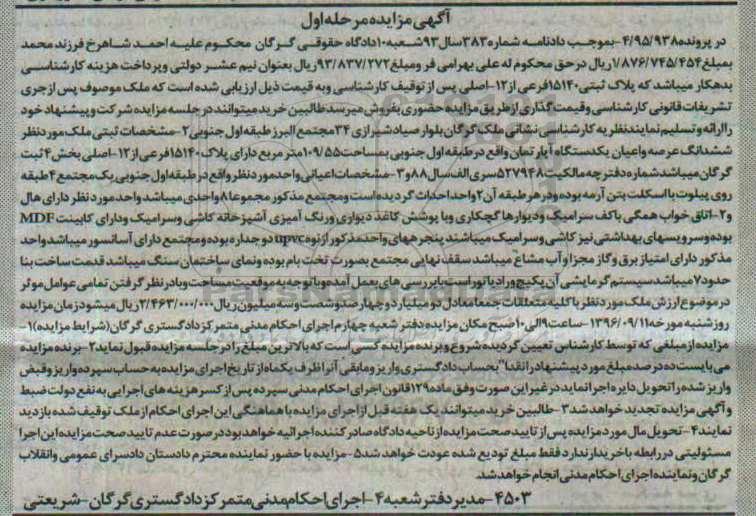 آگهی مزایده مرحله اول
در پرونده ۴/۹۵/۹۳۸-بموجب دادنامه شماره ۳۸۳ سال ۹۳ شعبه ۱۰ دادگاه حقوقی گرگان محکوم علیه احمد شاهرخ فرزند محمد
بمبلغ ۱/۸۷۶/۷۴۵/۴۵۴ ریال در حق محکوم له علی بهرامی فر و مبلغ ۹۳/۸۳۷/۲۷۲ ریال بعنوان نیم عشر دولتی و پرداخت هزینه کارشناسی
بدهکار میباشد که پلاک ثبتی ۱۵۱۴۰ فرعی از ۱۲-اصلی پس از توقیف کارشناسی و به قیمت ذیل ارزیابی شده است که ملک موصوف پس از جری
تشریفات قانونی کارشناسی و قیمت گذاری از طریق مزایده حضوری بفروش میرسد طالبین خرید میتوانند در جلسه مزایده شرکت و پیشنهاد خود
را ارائه و تسلیم نمایند نظریه کارشناسی نشانی ملک گرگان بلوار صیاد شیرازی ۳۴ مجتمع البرز طبقه اول جنوبی ۲-مشخصات ثبتی ملک مورد نظر
ششدانگ عرصه و اعیان یکدستگاه آپارتمان واقع در طبقه اول جنوبی بمساحت ۱۰۹/۵۵ متر مربع دارای پلاک ۱۵۱۴۰ فرعی از ۱۲-اصلی بخش ۴ ثبت
گرگان میباشد شماره دفترچه مالکیت ۵۲۷۹۴۸ سری الف سال ۸۸ و ۳-مشخصات اعیانی واحد مورد نظر واقع در طبقه اول جنوبی یک مجتمع ۴ طبقه
روی پیلوت با اسکلت بتن آرمه بوده و در هر طبقه آن ۲ واحد احداث گردیده است و مجتمع مذکور مجموعا ۸ واحدی میباشد واحد مورد نظر دارای هال
و ۲-اتاق خواب همگی با کف سرامیک و دیوارها گچکاری و با پوشش کاغذ دیواری و رنگ آمیزی آشپزخانه کاشی و سرامیک و دارای کابینت MDF
بوده و سرویسهای بهداشتی نیز کاشی و سرامیک میباشند پنجره های واحد مذکور از نوع upvc دو جداره بوده و مجتمع دارای آسانسور میباشد واحد
مذکور دارای امتیاز برق و گاز مجزا و آب مشاع میباشد سقف نهایی مجتمع بصورت تخت بام بوده و نمای ساختمان سنگ میباشد قدمت ساخت بنا
حدود ۷ میباشد سیستم گرمایشی آن پکیج و رادیاتور است با بررسی های بعمل آمده و با توجه به موقعیت مساحت و با در نظر گرفتن تمامی عوامل موثر
در موضوع ارزش ملک مورد نظر با کلیه متعلقات جمعا معادل دو میلیارد و چهارصد و شصت و سه میلیون ریال ۲/۴۶۳/۰۰۰/۰۰۰ ریال میشود زمان مزایده
روز شنبه مورخه ۱۳۹۶/۰۹/۱۱-ساعت ۹ الی ۱۰ صبح مکان مزایده دفتر شعبه چهارم اجرای احکام مدنی متمرکز دادگستری گرگان (شرایط مزایده) ۱-
مزایده از مبلغی که توسط کارشناس تعیین گردیده شروع و برنده مزایده کسی است که بالاترین مبلغ را در جلسه مزایده قبول نماید ۲-برنده مزایده
می بایست ده درصد مبلغ مورد پیشنهاد را نقدا" بحساب دادگستری واریز و مابقی آنرا ظرف یکماه از تاریخ اجرای مزایده به حساب سپرده واریز و قبض
واریز شده را تحویل دایره اجرا نماید در غیر این صورت وفق ماده ۱۲۹ قانون اجرای احکام مدنی سپرده پس از کسر هزینه های اجرایی به نفع دولت ضبط
و آگهی مزایده تجدید خواهد شد ۳-طالبین خرید میتوانند یک هفته قبل از اجرای مزایده با هماهنگی این اجرای احکام از ملک توقیف شده بازدید
نمایند ۴-تحویل مال مورد مزایده پس از تایید صحت مزایده از ناحیه دادگاه صادر کننده اجرائیه خواهد بود در صورت عدم تایید صحت مزایده این اجرا
مسئولیتی در رابطه با خریدار ندارد فقط مبلغ تودیع شده عودت خواهد شد ۵-مزایده با حضور نماینده محترم دادستان دادسرای عمومی و انقلاب
گرگان و نماینده اجرای احکام مدنی انجام خواهد شد.
۴۵۰۳-مدیر دفتر شعبه ۴-اجرای احکام مدنی متمرکز دادگستری گرگان-شریعتی